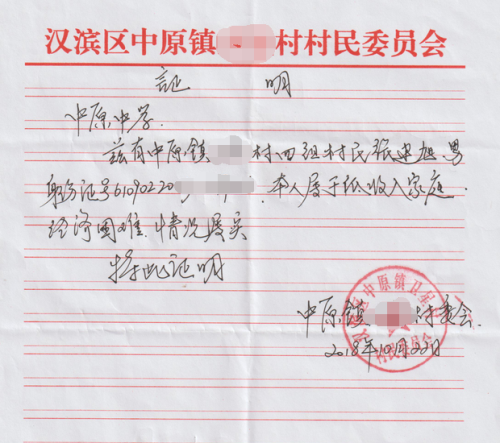 汉滨区中原镇村村民委员会
证 明
中原中学.
兹有中原镇村四组村民张建旭,男
身份证号61090220,本人属于低收入家庭.
经济困难.情况属实
特此证明
中原镇村委会.
2018年10月22日
区中原镇卫星
村民委员会